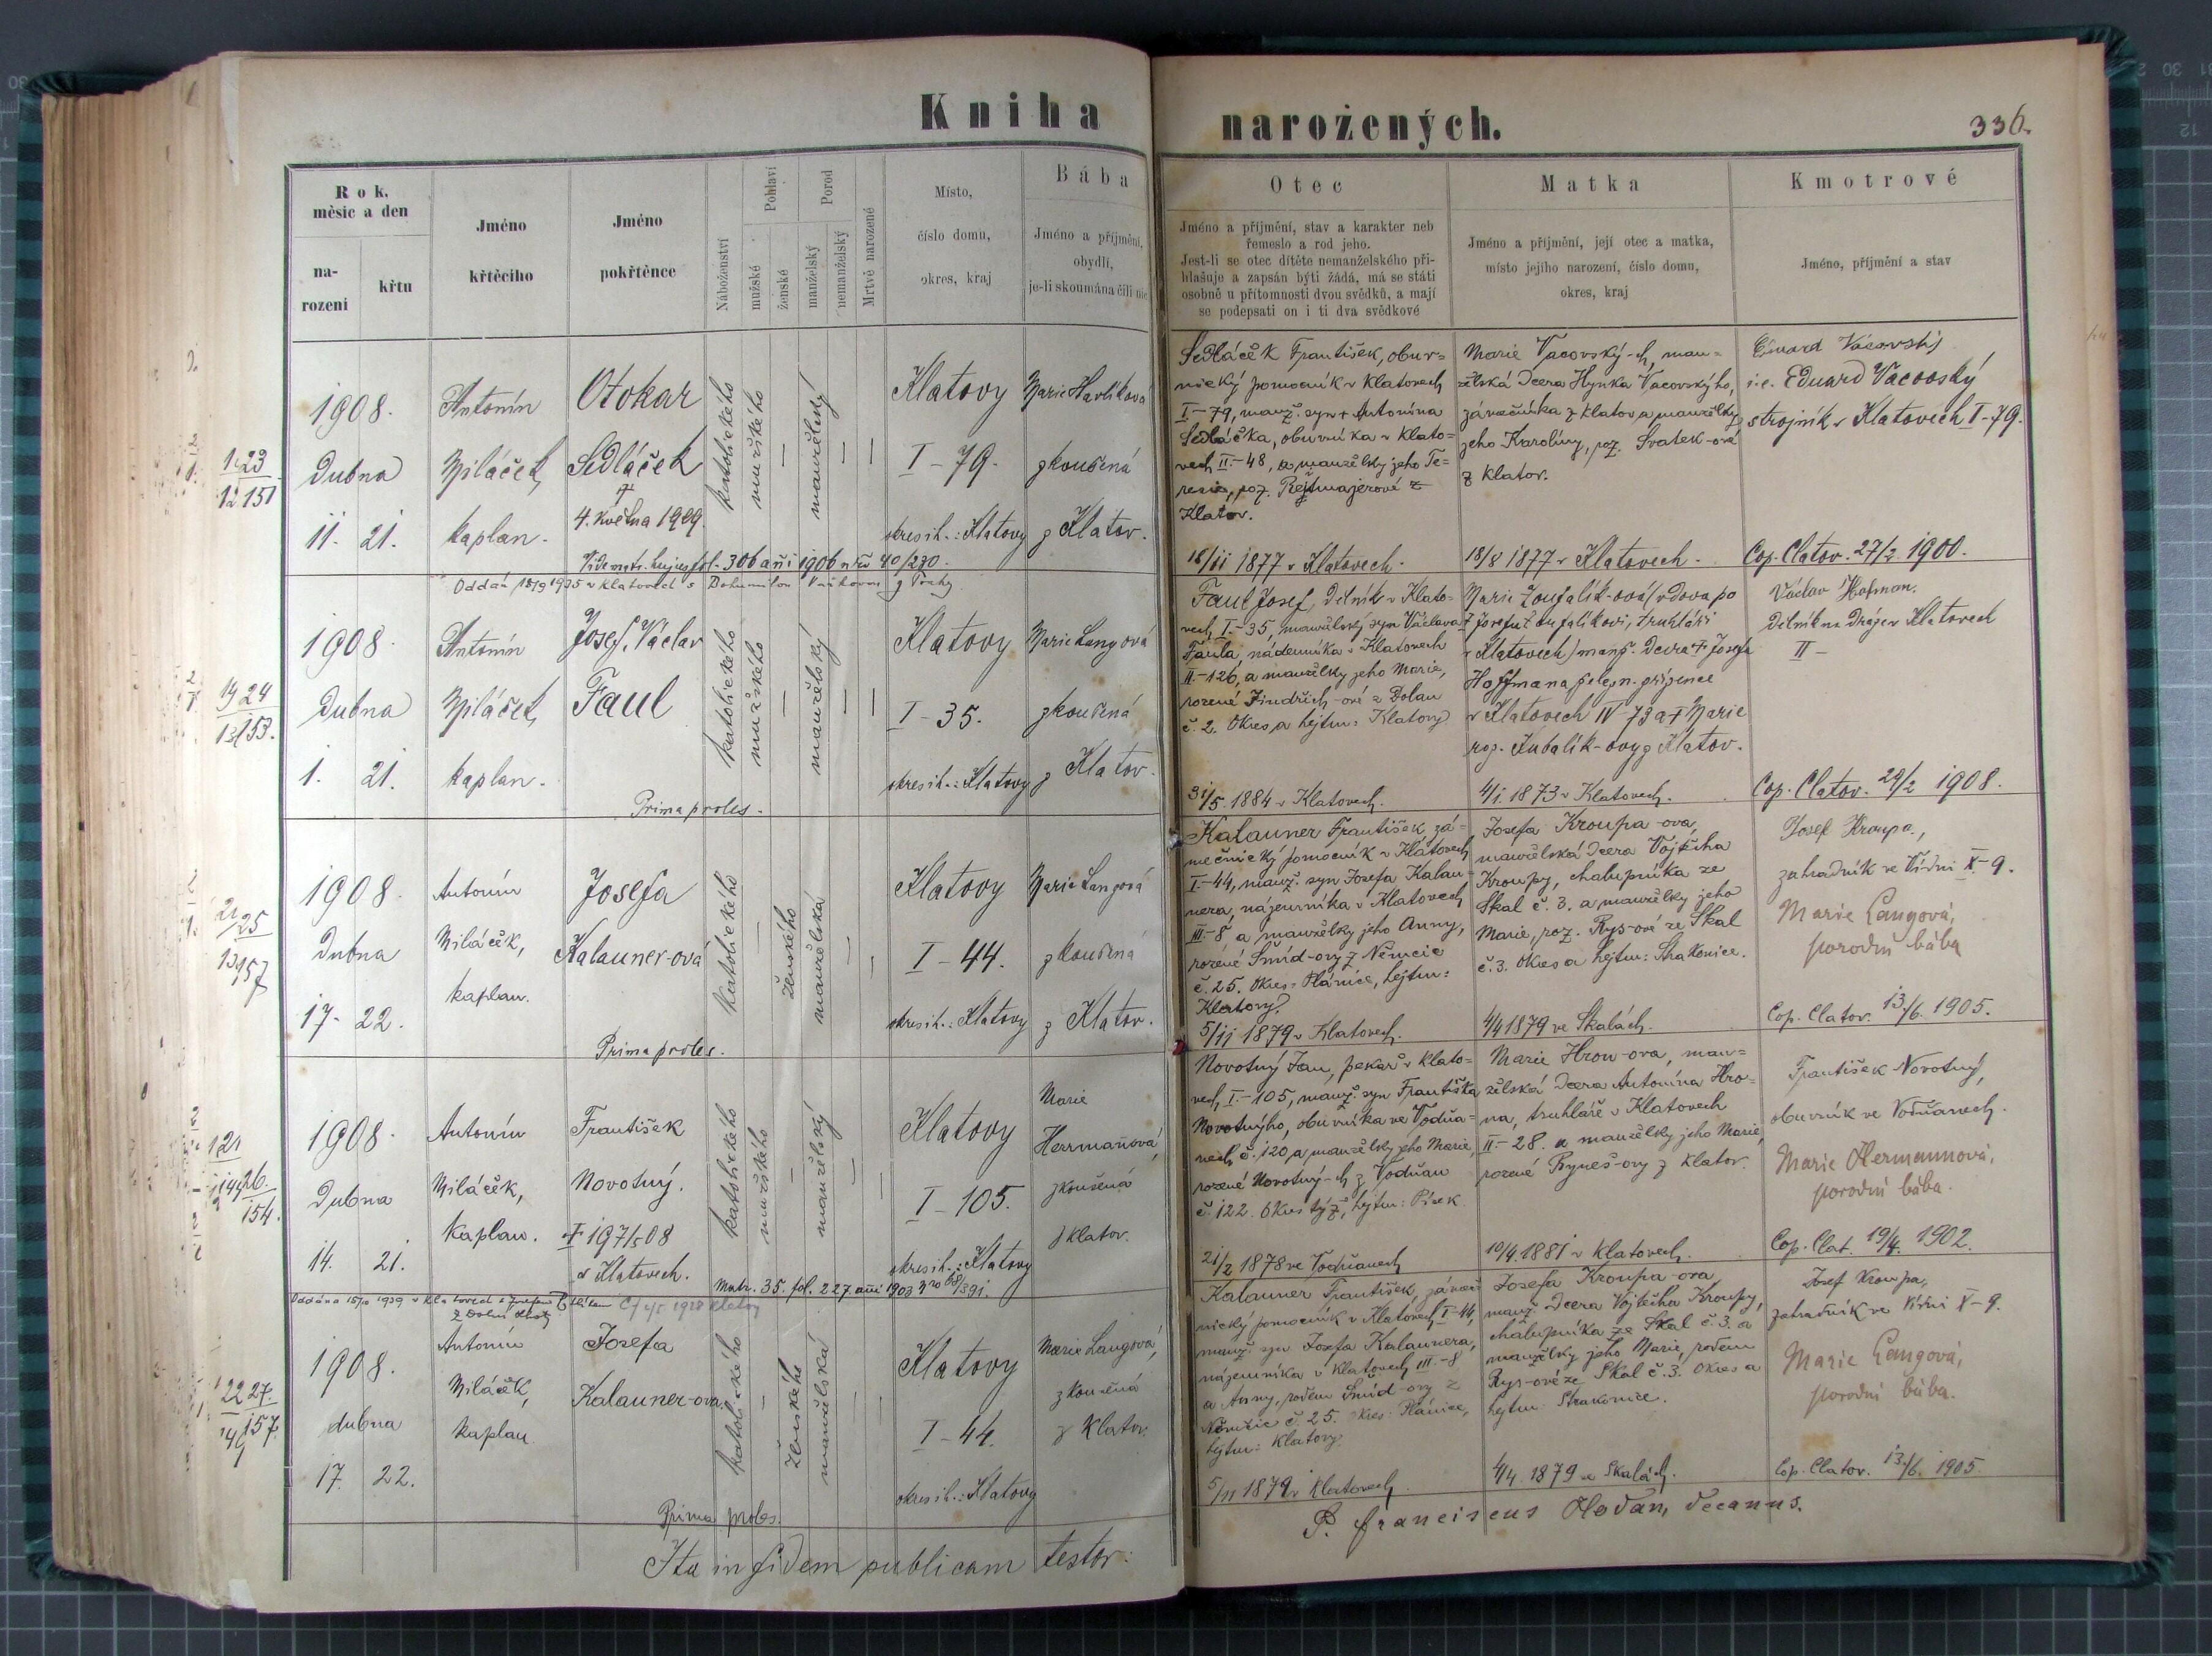 Kniha narozených.
336.
Rok.
měsíc a den
na-
rození
křtu
Jméno
křtěcího
Jméno
pokřtěnce
Náboženství
Pohlaví
mužské
ženské
Porod
manželský
nemanželský
Mrtvě narozené
Místo,
číslo domu,
okres, kraj
Bába
Jméno a příjmění,
obydlí,
je-li skoumána čili nic
Otec
Jméno a příjmění, stav a karakter neb
řemeslo a rod jeho.
Jest-li se otec dítěte nemanželského při-
hlašuje a zapsán býti žádá, má se státi
osobně u přítomnosti dvou svědků, a mají
se podepsati on i ti dva svědkové
Matka
Jméno a příjmění, její otec a matka,
místo jejího narození, číslo domu,
okres, kraj
Kmotrové
Jméno, příjmění a stav
1908.
Dubna
11. 21.
Antonín
Miláček,
kaplan.
Otokar
Sedláček
4. května 1909.
katolického
mužského
manželský
Klatovy
I-79.
okres i h.: Klatovy
Marie Havlíková
zkoušená
z Klatov.
Sedláček František, obuv-
nický pomocník v Klatovech
I-79, manž. syn † Antonína
Sedláčka, obuvníka v Klato-
vech II-48, a manželky jeho Te-
resie, roz. Rejtmajerové z
Klatov.
16/11 1877 v Klatovech.
Marie Vacovský-ch, man-
želská dcera Hynka Vacovskýho,
zámečníka z Klatov a manželky
jeho Karolíny, roz. Svatek-ové
z Klatov.
18/8 1877 v Klatovech.
Eduard Vacovský
i.e. Eduard Vacovský
strojník v Klatovech I-79.
Cop. Clatov. 27/2 1900.
Vide matr. hujus fol. 306 anni 1906 nrus 40/230.
Oddán 15/9 1935 v Klatovech s Bohumilou z Prahy
1908.
Dubna
1. 21.
Antonín
Miláček,
kaplan.
Josef, Václav
Faul
Prima proles.
katolického
mužského
manželský
Klatovy
I-35.
okres i h.: Klatovy
Marie Langová
zkoušená
z Klatov.
Faul Josef, dělník v Klato-
vech I.-35, manželský syn Václava
Faula, nádenníka v Klatovech
II-126, a manželky jeho Marie,
rozené Jindřich-ové z Dolan
č. 2. Okres a hejtm: Klatovy
31/5. 1884 v Klatovech.
Marie Zoufalík-ová (vdova po
† Josefu Zoufalíkovi, truhláři
v Klatovech) manž. dcera † Josefa
Hoffmana želez. zřízence
v Klatovech IV-73 a † Marie
roz. Kubalík-ovy z Klatov.
4/1. 1873 v Klatovech.
Václav Hofman,
dělník na Dráze v Klatovech
II-
Cop. Clatov. 24/2 1908.
1908.
Dubna
17. 22.
Antonín
Miláček,
kaplan.
Josefa
Kalauner-ová
Prima proles.
katolického
ženského
manželská
Klatovy
I-44.
okres i h.: Klatovy
Marie Langová
zkoušená
z Klatov.
Kalauner František, zá-
mečnický pomocník v Klatovech
I-44, manž. syn Josefa Kalau-
nera, nájemníka v Klatovech
III-8 a manželky jeho Anny,
rozené Šmíd-ovy z Němčic
č. 25. Okres: Plánice, hejtm:
Klatovy.
5/11 1879 v Klatovech.
Josefa Kroupa-ova,
manželská dcera Vojtěcha
Kroupy, chalupníka ze
Skal č. 3. a manželky jeho
Marie, roz. Rys-ové ze Skal
č. 3. Okres a hejtm: Strakonice.
4/4 1879 ve Skalách.
Josef Kroupa,
zahradník ve Vídni X-9.
Marie Langová,
porodní bába
Cop. Clatov. 13/6. 1905.
1908.
Dubna
14. 21.
Antonín
Miláček,
kaplan.
František
Novotný.
† 19 7/5 08
v Klatovech.
katolického
mužského
manželský
Klatovy
I-105.
okres i h.: Klatovy
Marie
Herrmannová,
zkoušená
z Klatov.
Matr. 35. fol. 227. anni 1903 nro 68/591.
Novotný Jan, pekař v Klato-
vech I.-105, manž. syn Františka
Novotnýho, obuvníka ve Vodňa-
nech č. 120, a manželky jeho Marie,
rozené Novotný-ch z Vodňan
č. 122. Okres týž, hejtm: Písek
21/2 1878 ve Vodňanech
Marie Hron-ova, man-
želská dcera Antonína Hro-
na, truhláře v Klatovech
II-28. a manželky jeho Marie,
rozené Ryneš-ovy z Klatov.
10/4. 1881 v Klatovech.
František Novotný,
obuvník ve Vodňanech.
Marie Hermannová,
porodní bába.
Cop. Clat. 19/4. 1902.
1908.
dubna
17. 22.
Antonín
Miláček,
kaplan.
Josefa
Kalauner-ova
Prima proles.
katolického
ženského
manželská
Klatovy
I-44.
okres i h.: Klatovy
Marie Langová,
zkoušená
z Klatov.
Kalauner František, zámeč-
nický pomocník v Klatovech I-44,
manž. syn Josefa Kalaunera,
nájemníka v Klatovech III-8
a Anny, rozen. Šmíd-ovy z
Němčic č. 25. Okres: Plánice,
hejtm: Klatovy.
5/11 1879 v Klatovech.
Josefa Kroupa-ova,
manž. dcera Vojtěcha Kroupy,
chalupníka ze Skal č. 3. a
manželky jeho Marie, rozen.
Rys-ové ze Skal č. 3. Okres a
hejtm: Strakonice.
4/4. 1879 ve Skalách.
Josef Kroupa,
zahradník ve Vídni X-9.
Marie Langová,
porodní bába.
Cop. Clatov. 13/6. 1905.
Ita in fidem publicam testor:
P. Franciscus Hodan, decanus.